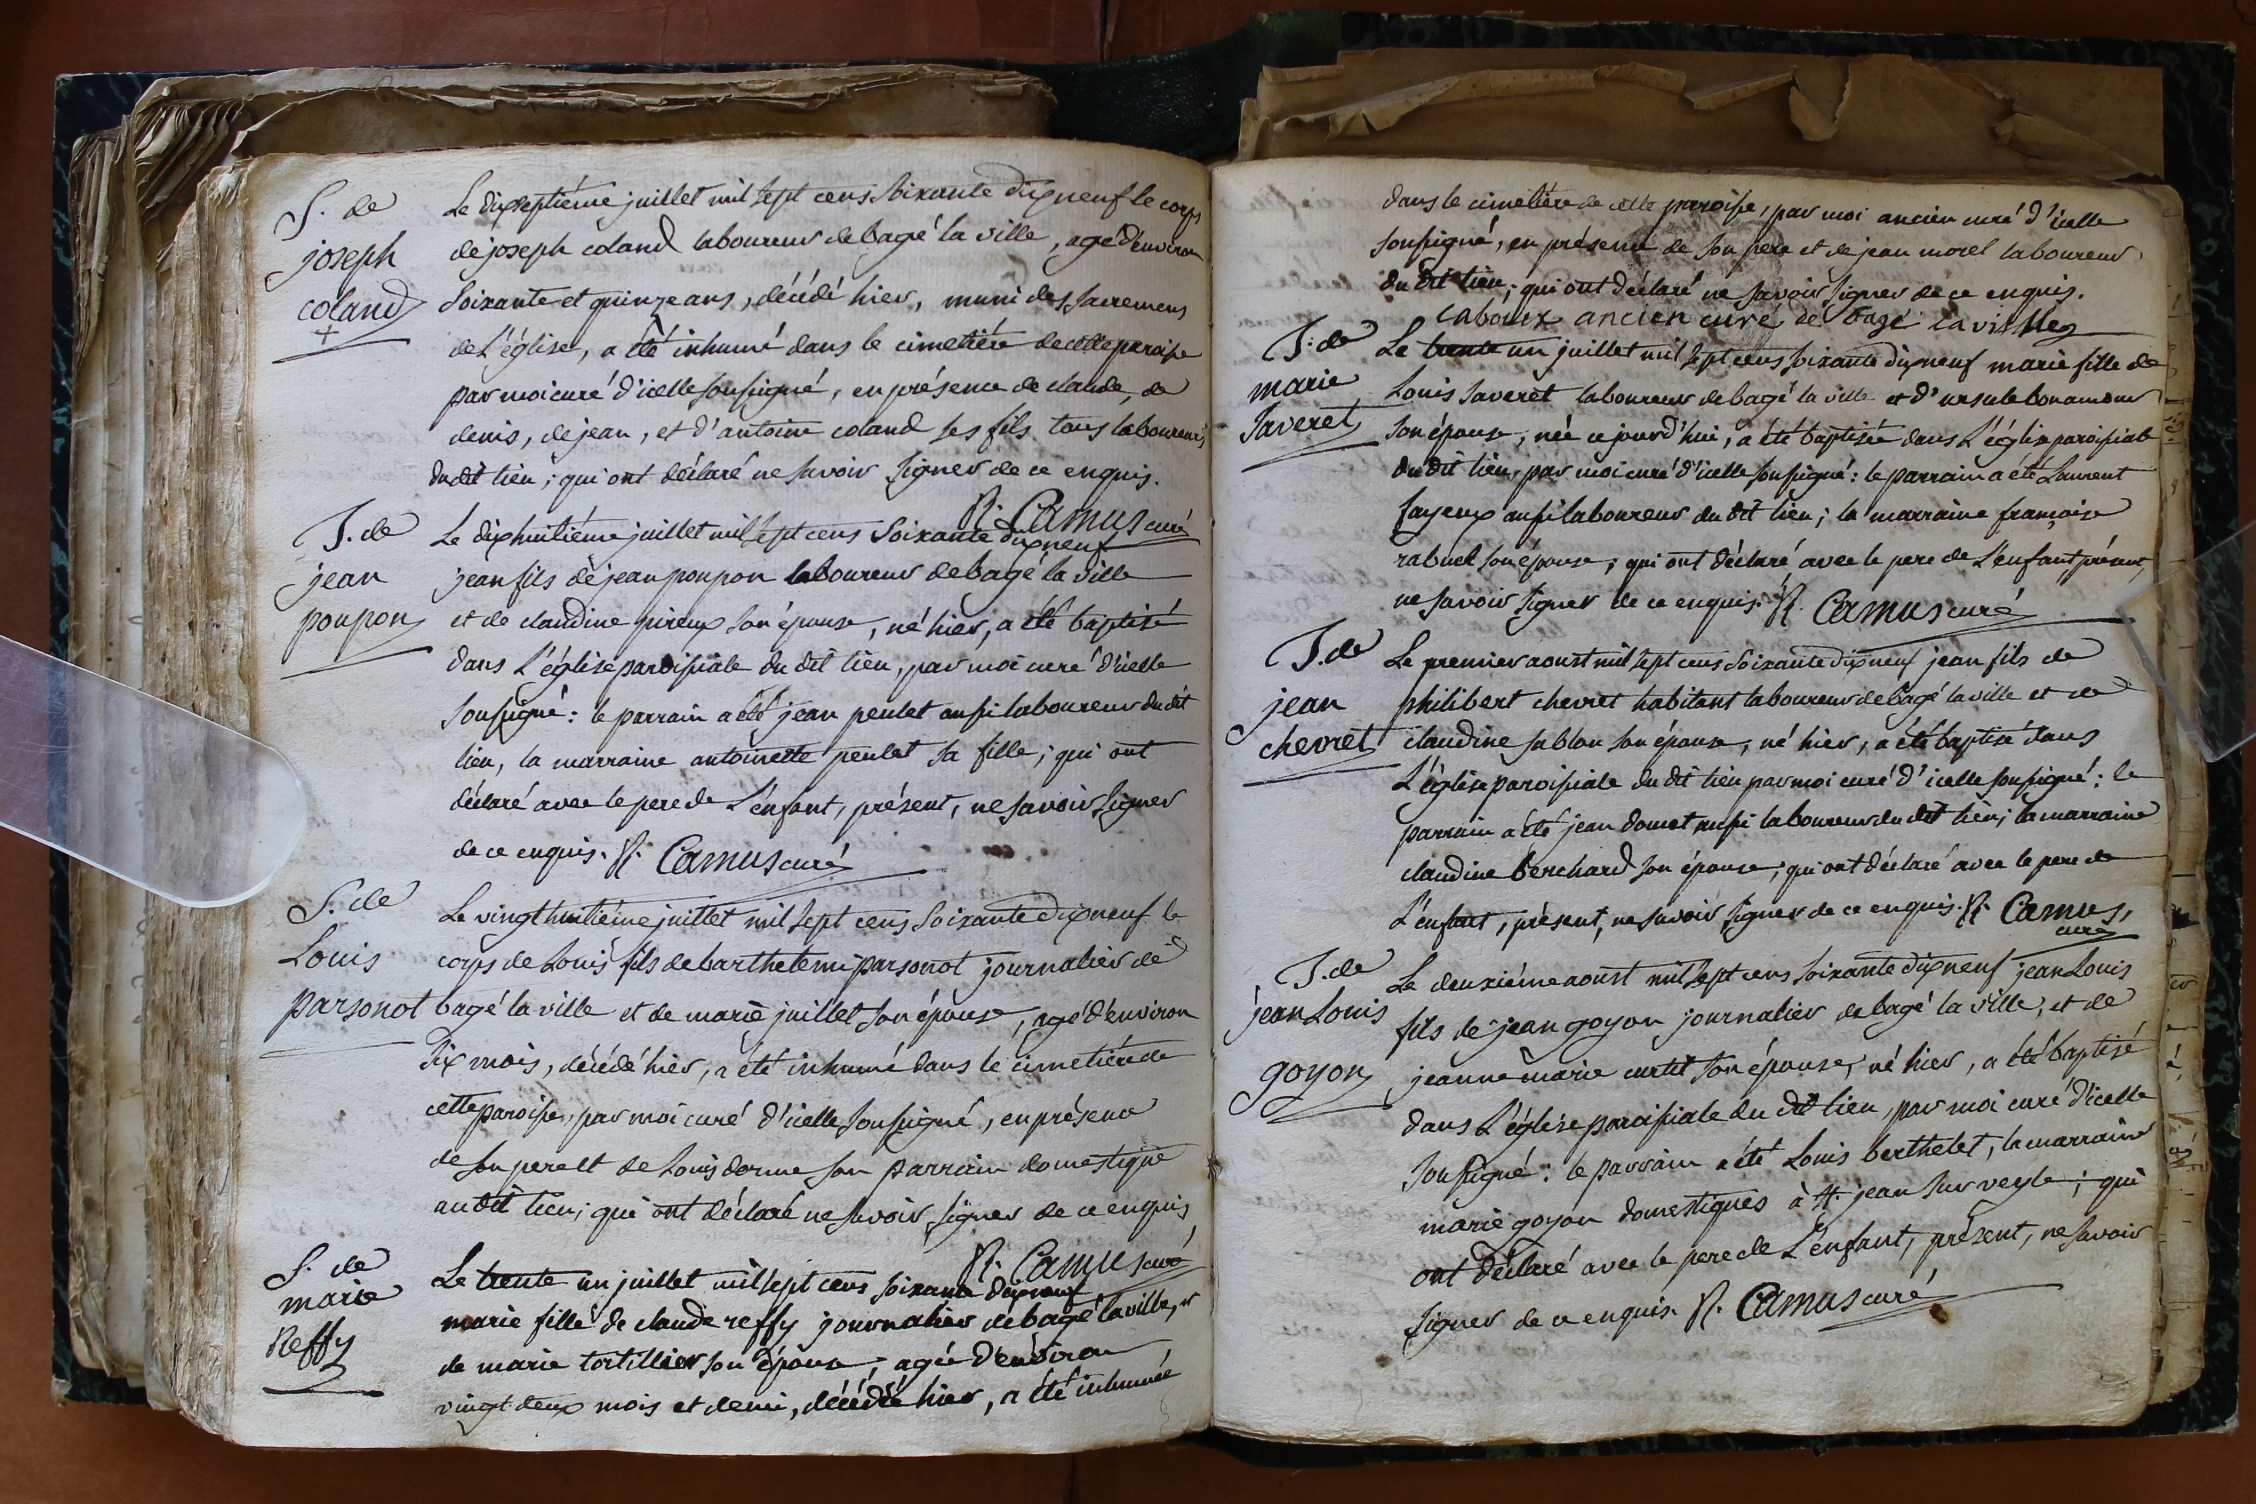 S. de
joseph
coland
Le dixseptiéme juillet mil sept cens soixante dix neuf le corps
de joseph coland laboureur de bagé la ville, agé d'environ
soixante et quinze ans, décédé hier, muni des sacremens
de L'église, a été inhumé dans le cimetiére de cette paroisse
par moi curé d'icelle soussigné, en présence de claude, de
denis, de jean, et d'antoine coland ses fils tous laboureurs
dudit lieu; qui ont déclaré ne savoir signer de ce enquis.
Camus curé
J. de
jean
poupon
Le dix huitiéme juillet mil sept cens soixante dix neuf
jean fils de jean poupon laboureur de bagé la ville
et de claudine pireux son épouse, né hier, a été baptisé
dans L'église paroissiale du dit lieu, par moi curé d'icelle
soussigné: le parrain a été jean peulet aussi laboureur du dit
lieu, la marraine antoinette peulet sa fille; qui ont
déclaré avec le pere de L'enfant, présent, ne savoir signer
de ce enquis. Camus curé
S. de
Louis
parsonot
Le vingt huitiéme juillet mil sept cens soixante dix neuf le
corps de Louis fils de barthelemi parsonot journalier de
bagé la ville et de marie juillet son épouse, agé d'environ
six mois, décédé hier, a été inhumé dans le cimetiére de
cette paroisse, par moi curé d'icelle soussigné, en présence
de son pere et de Louis dorme son parrain domestique
au dit lieu; qui ont déclaré ne savoir signer de ce enquis
Camus curé
S. de
marie
Reffy
Le trente un juillet mil sept cens soixante dix neuf
marie fille de claude reffy journalier de bagé la ville, et
de marie tortillier son épouse, agée d'environ
vingt deux mois et demi, décédée hier, a été inhumée
dans le cimetiére de cette paroisse, par moi ancien curé d'icelle
soussigné, en présence de son pere et de jean morel laboureur
du dit lieu; qui ont déclaré ne savoir signer de ce enquis.
Laboux ancien curé de bagé la ville
J. de
marie
Saveret
Le trente un juillet mil sept cens soixante dix neuf marie fille de
Louis Saveret laboureur de bagé la ville et d'ursule bonamour
son épouse, née ce jourd'hui, a été baptisée dans L'église paroissiale
du dit lieu, par moi curé d'icelle soussigné: le parrain a été Laurent
fayeux aussi laboureur du dit lieu; la marraine françoise
rabuel son épouse, qui ont déclaré avec le pere de L'enfant présent,
ne savoir signer de ce enquis. Camus curé
J. de
jean
chevret
Le premier aoust mil sept cens soixante dix neuf jean fils de
philibert chevret habitant laboureur de bagé la ville et de
claudine sablon son épouse, né hier, a été baptisé dans
L'église paroissiale du dit lieu par moi curé d'icelle soussigné: le
parrain a été jean domet aussi laboureur du dit lieu; la marraine
claudine berchard son épouse; qui ont déclaré avec le pere de
L'enfant, présent, ne savoir signer de ce enquis. Camus,
curé
J. de
jean Louis
goyon
Le deuxiéme aoust mil sept cens soixante dix neuf jean Louis
fils de jean goyon journalier de bagé la ville, et de
jeanne marie curtil son épouse, né hier, a été baptisé
dans L'église paroissiale du dit lieu, par moi curé d'icelle
soussigné: le parrain a été Louis berthelet, la marraine
marie goyon domestiques à St. jean sur veyle; qui
ont déclaré avec le pere de L'enfant, présent, ne savoir
signer de ce enquis. Camus curé